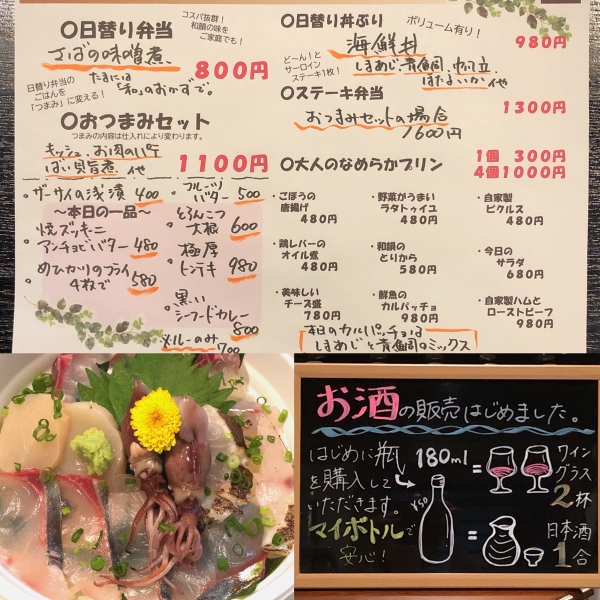 〇日替り弁当
コスパ抜群!
和韻の味を
ご家庭でも!
さばの味噌煮、
800円
たまには
「和」のおかずで。
日替り弁当の
ごはんを
「つまみ」に変える!
〇おつまみセット
つまみの内容は仕入れにより変わります。
キッシュ、お肉のパテ
ばい貝旨煮、他
1100円
・ザーサイの浅漬 400
・フルーツバター 500
〜本日の一品〜
・焼ズッキーニ
アンチョビバター 480
・めひかりのフライ
4枚で 580
・とろんこつ
大根 600
・極厚
トンテキ 980
・黒い
シーフードカレー
800
※ルーのみ 700
〇日替り丼ぶり
ボリューム有り!
海鮮丼
980円
しまあじ、青鯛、帆立、
ほたるいか 他
ど〜ん!と
サーロイン
ステーキ1枚!
〇ステーキ弁当
1300円
おつまみセットの場合
1600円
〇大人のなめらかプリン
1個 300円
4個1000円
・ごぼうの
唐揚げ
480円
・野菜がうまい
ラタトゥイユ
480円
・自家製
ピクルス
480円
・鶏レバーの
オイル煮
480円
・和韻の
とりから
580円
・今日の
サラダ
680円
・美味しい
チーズ盛
780円
・鮮魚の
カルパッチョ
980円
・自家製ハムと
ローストビーフ
980円
本日のカルパッチョは
しまあじと青鯛のミックス
お酒の販売はじめました。
はじめに瓶
を購入して
いただきます。
マイボトルで
安心!
180ml
¥50
=
ワイン
グラス
2杯
=
日本酒
1合